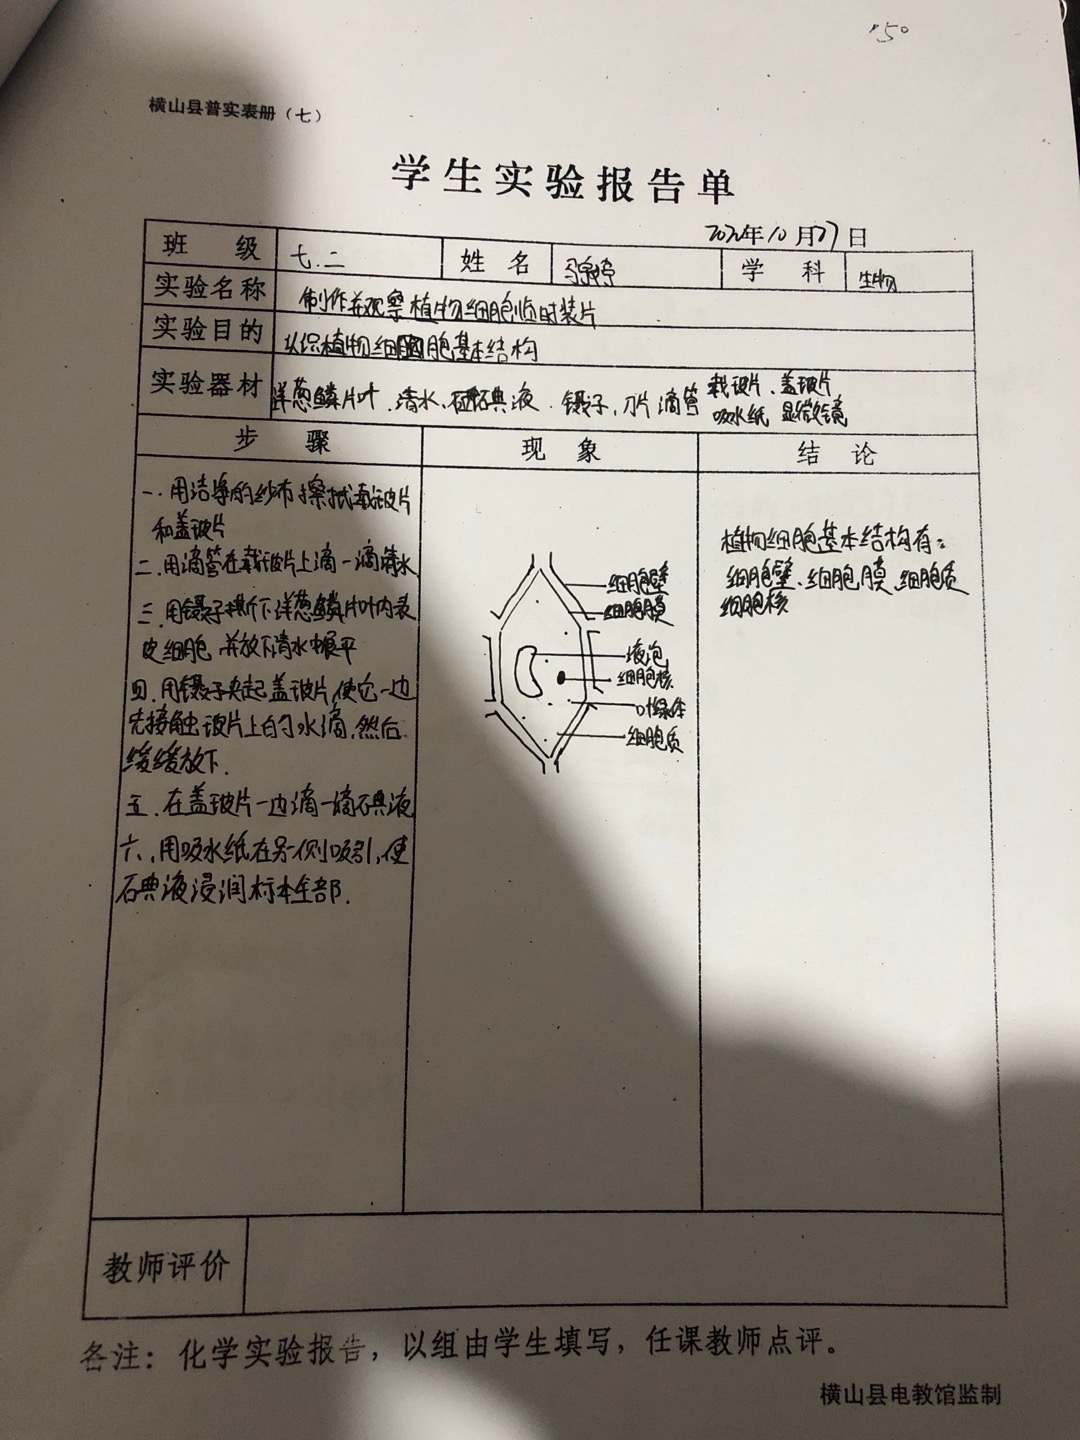 横山县普实表册（七）
学生实验报告单
2020年10月27日
班 级 七.二 姓 名 学 科 生物
实验名称 制作并观察植物细胞临时装片
实验目的 认识植物细胞基本结构
实验器材 洋葱鳞片叶、清水、碘液、镊子、刀片 滴管 载玻片、盖玻片
吸水纸 显微镜
步 骤 现 象 结 论
一.用洁净的纱布擦拭载玻片
和盖玻片
二.用滴管在载玻片上滴一滴清水
三.用镊子撕下洋葱鳞片叶内表
皮细胞,并放下清水中展平
四.用镊子夹起盖玻片,使它一边
先接触玻片上的水滴,然后
缓缓放下.
五.在盖玻片一边滴一滴石典液
六,用吸水纸在另一侧吸引,使
石典液浸润标本全部.
细胞壁
细胞膜
液泡
细胞核
叶绿体
细胞质
植物细胞基本结构有:
细胞壁、细胞膜、细胞质
细胞核
教师评价
各注：化学实验报告，以组由学生填写，任课教师点评。
横山县电教馆监制